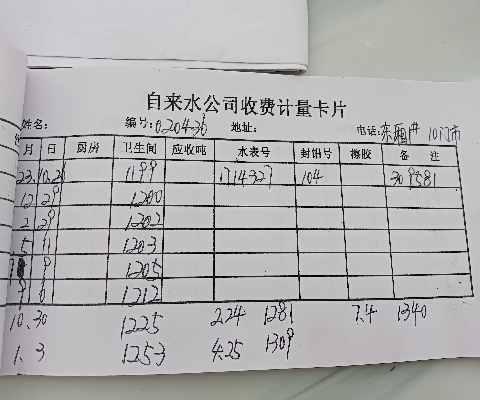 自来水公司收费计量卡片
姓名: 编号: 0204-36 地址: 电话: 10门市
月 日 厨房 卫生间 应收吨 水表号 封铅号 擦胶 备 注
23.10.2 1199 1714327 104 309581
12 29 1200
2 29 1202
5 11 1203
9 1205
9 6 1212
10.30 1225 2.24 1281 7.4 1340
1.3 1253 4.25 1309